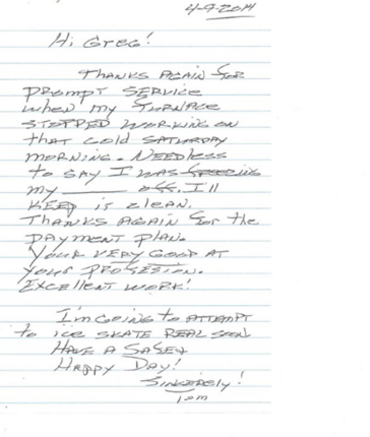 4-9-2014
Hi Greg!
THANKS AGAIN for
PROMPT SERVICE
when my FURNACE
STOPPED WORKING ON
that COLD SATURDAY
MORNING. NEEDLESS
to SAY I WAS FREEZING
my ______ off. I'll
KEEP it clean.
THANKS AGAIN for the
PAYMENT PLAN.
YOUR VERY GOOD AT
YOUR PROFESION.
EXCELLENT WORK!
I'm GOING to ATTEMPT
to ice SKATE REAL SOON
HAVE A SAFE
HAPPY DAY!
SINCERELY!
Tom